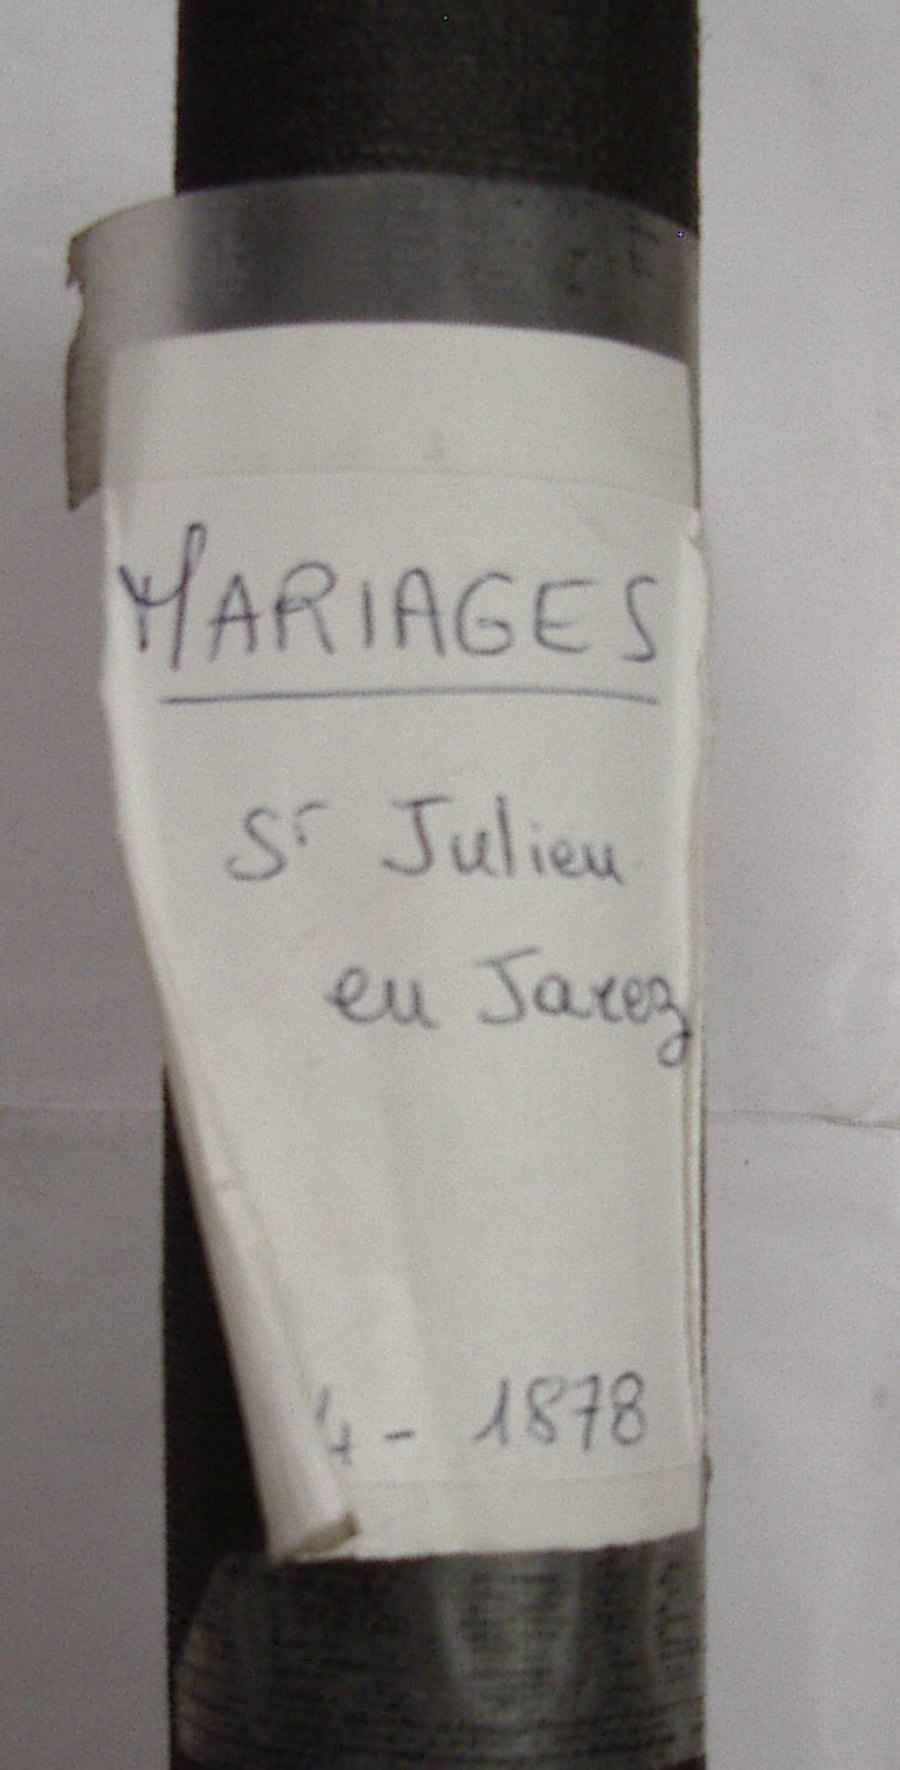 MARIAGES
St Julien
en Jarez
4 - 1878